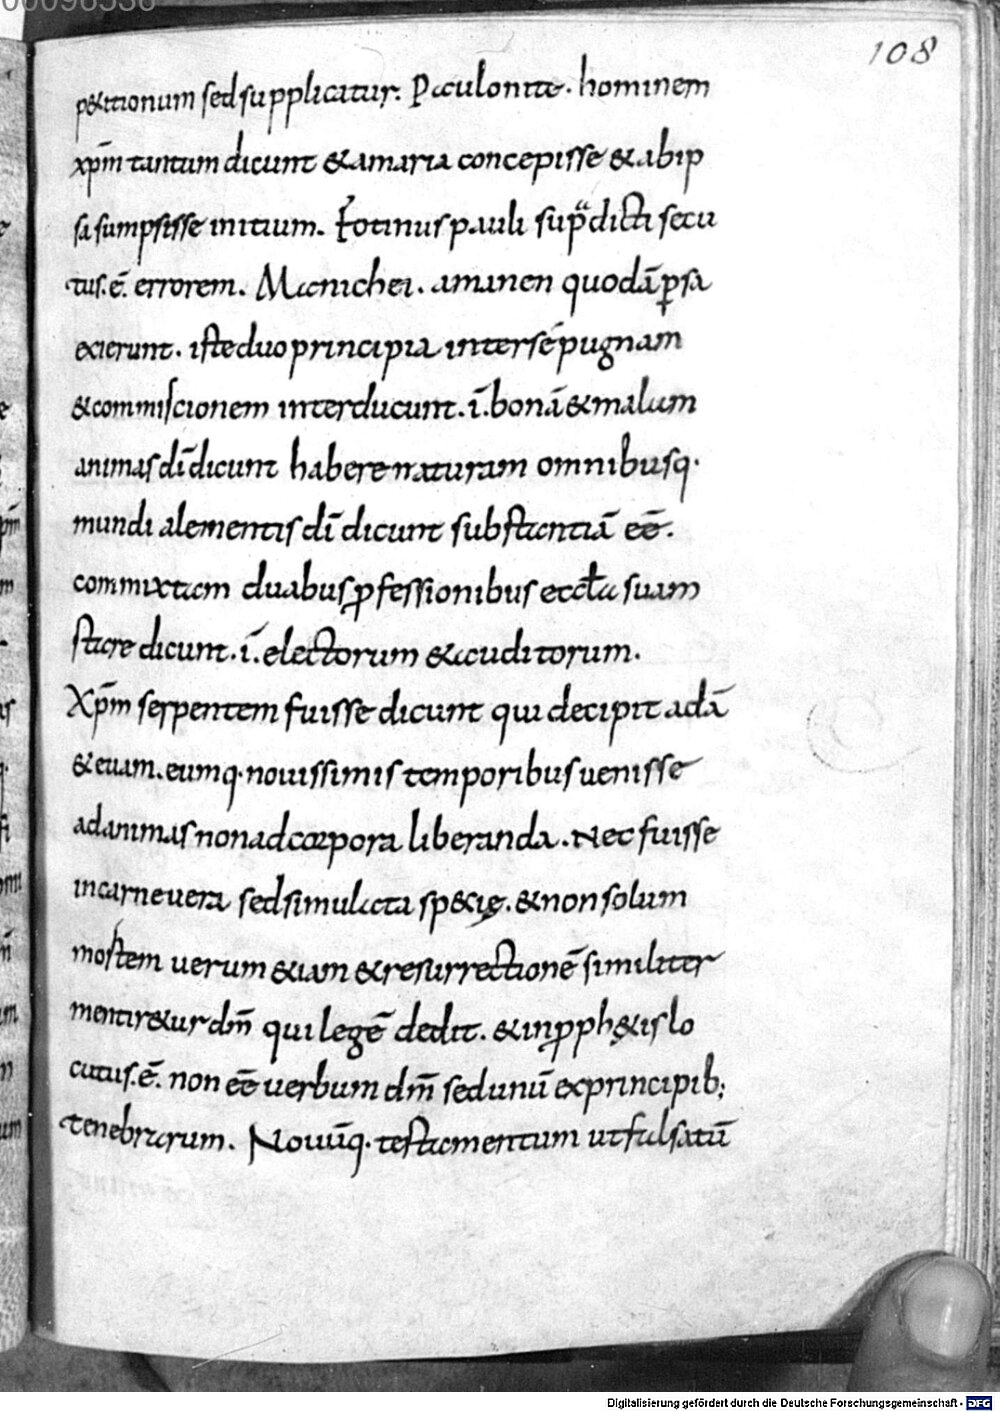 00096536
108
p&itionum sed supplicatur. Paulonite. hominem
xp̄m tantum dicunt & amaria concepisse & abip
sa sumpsisse initium. Fotinus pauli sup̄dicti secu
tus. ē. errorem. Manichei. amanen quodā ꝑsa
exierunt. iste duo principia inter se pugnam
& commiscionem inter ducunt. ī. bonā & malum
animas dī dicunt habere naturam omnibusq.
mundi alementis dī dicunt substantiā eē.
commixtam duabus ꝓfessionibus eccłā suam
stare dicunt. ī. electorum & auditorum.
Xp̄m serpentem fuisse dicunt qui decipit adā
& euam. eumq. nouissimis temporibus uenisse
ad animas non ad corpora liberanda. Nec fuisse
in carne uera sed simulata sp&cię. & non solum
mostem uerum &iam & resurrectionē similiter
mentir&ur dm̄ qui legē dedit. & in ꝓph&is lo
cutus. ē. non eē uerbum dm̄ sed unū ex principib;
tenebrarum. Nouūq. testamentum ut falsatū
Digitalisierung gefördert durch die Deutsche Forschungsgemeinschaft - DFG